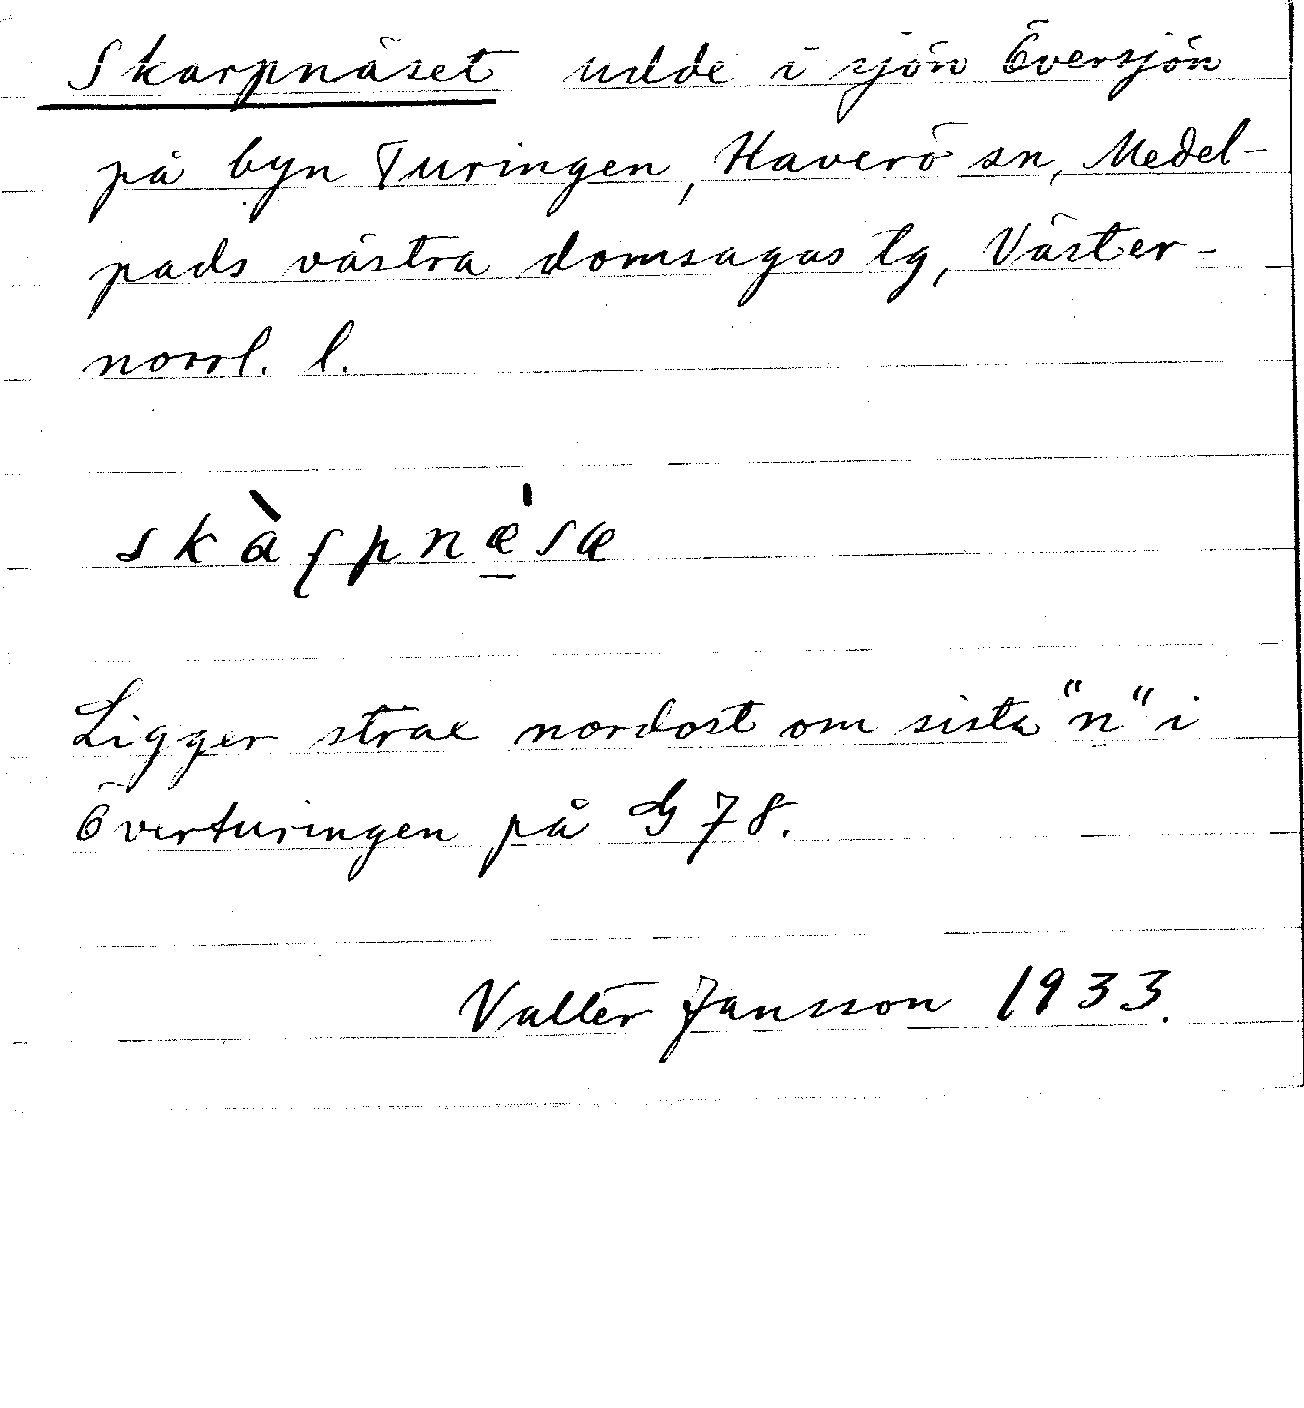 Skarpnäset udde i sjön Översjön
på byn Turingen, Haverö sn, Medel-
pads västra domsagas tg, Väster-
norrl. l.
skàʂpnæ̱ˈsæ
Ligger strax nordost om sista "n" i
Överturingen på G 78.
Valter Jansson 1933.